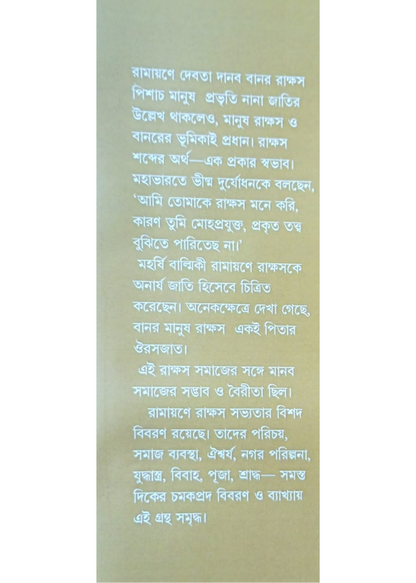 রামায়ণে দেবতা দানব বানর রাক্ষস
পিশাচ মানুষ প্রভৃতি নানা জাতির
উল্লেখ থাকলেও, মানুষ রাক্ষস ও
বানরের ভূমিকাই প্রধান। রাক্ষস
শব্দের অর্থ—এক প্রকার স্বভাব।
মহাভারতে ভীষ্ম দুর্যোধনকে বলছেন,
‘আমি তোমাকে রাক্ষস মনে করি,
কারণ তুমি মোহপ্রযুক্ত, প্রকৃত তত্ব
বুঝিতে পারিতেছ না।’
মহর্ষি বাল্মিকী রামায়ণে রাক্ষসকে
অনার্য জাতি হিসেবে চিত্রিত
করেছেন। অনেকক্ষেত্রে দেখা গেছে,
বানর মানুষ রাক্ষস একই পিতার
ঔরসজাত।
এই রাক্ষস সমাজের সঙ্গে মানব
সমাজের সদ্ভাব ও বৈরীতা ছিল।
রামায়ণে রাক্ষস সভ্যতার বিশদ
বিবরণ রয়েছে। তাদের পরিচয়,
সমাজ ব্যবস্থা, ঐশ্বর্য, নগর পরিল্পনা,
যুদ্ধাস্ত্র, বিবাহ, পূজা, শ্রাদ্ধ— সমস্ত
দিকের চমকপ্রদ বিবরণ ও ব্যাখ্যায়
এই গ্রন্থ সমৃদ্ধ।